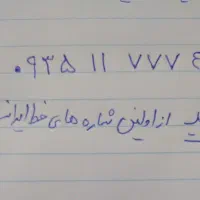 ۰۹۳۵ ۱۱ ۷۷۷
از اولین شماره های خط ایرانسل